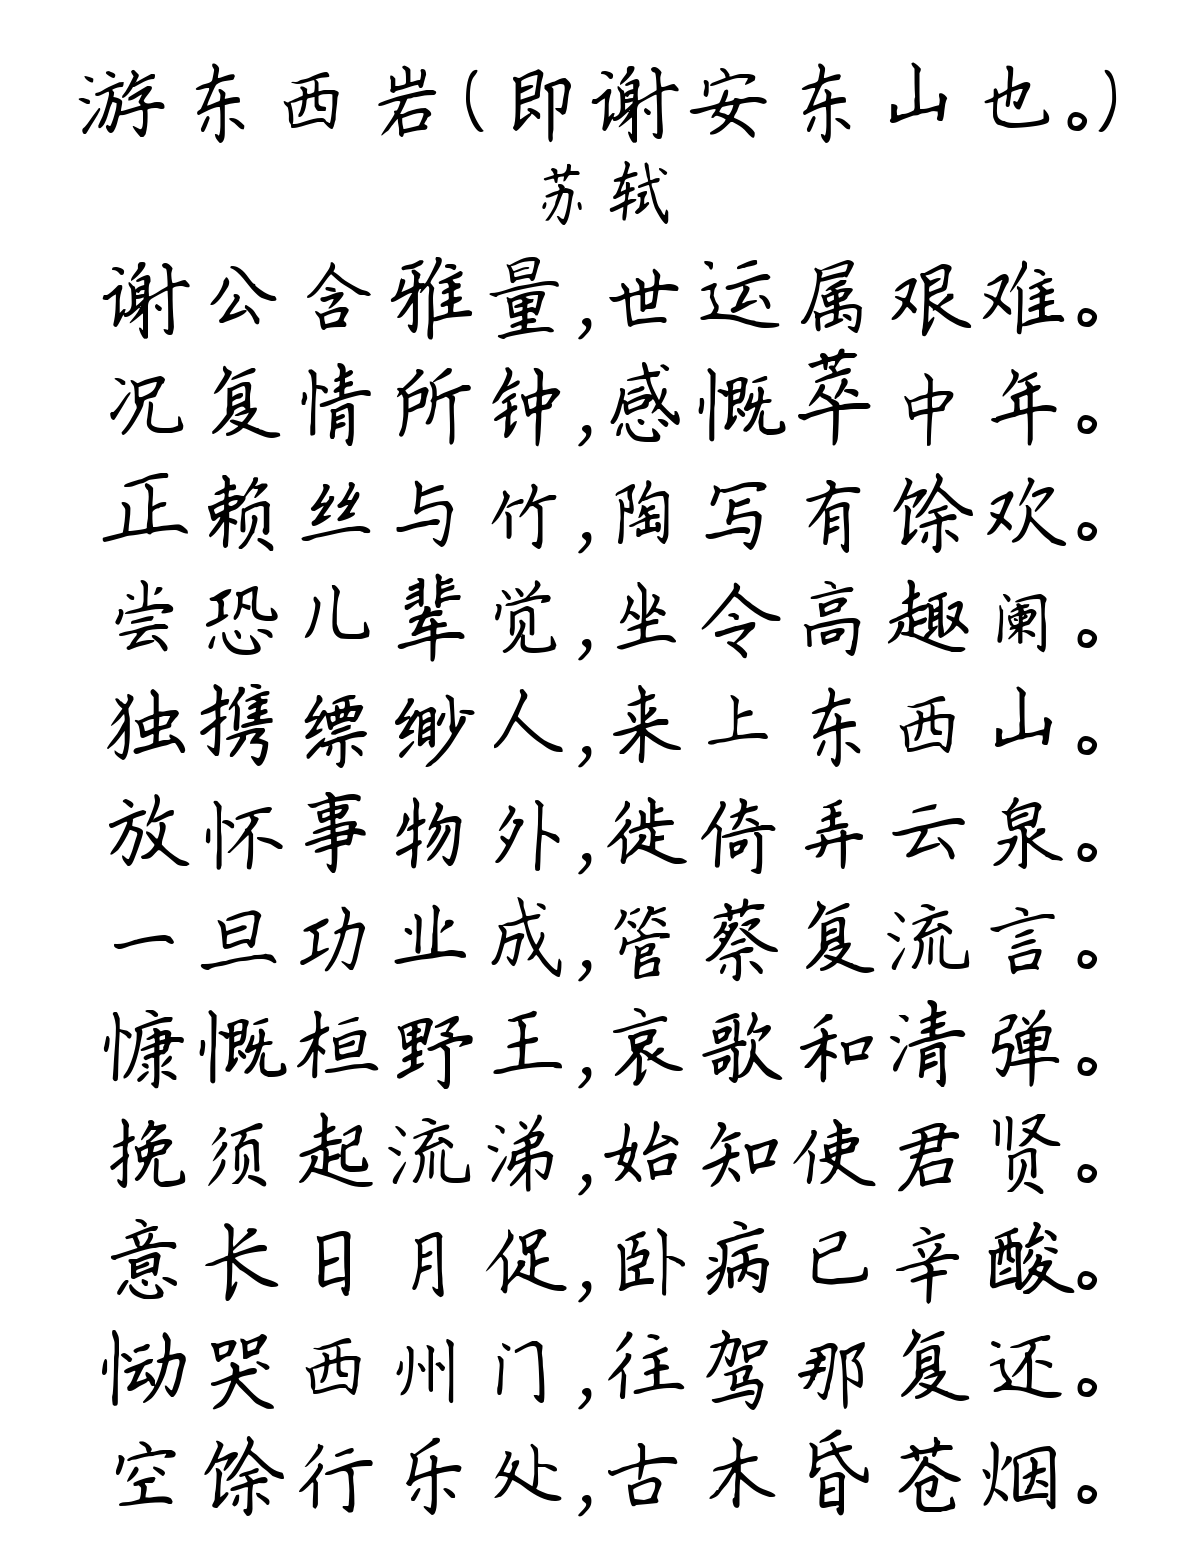 游东西岩(即谢安东山也。)
苏轼
谢公含雅量,世运属艰难。
况复情所钟,感慨萃中年。
正赖丝与竹,陶写有馀欢。
尝恐儿辈觉,坐令高趣阑。
独携缥缈人,来上东西山。
放怀事物外,徙倚弄云泉。
一旦功业成,管蔡复流言。
慷慨桓野王,哀歌和清弹。
挽须起流涕,始知使君贤。
意长日月促,卧病已辛酸。
恸哭西州门,往驾那复还。
空馀行乐处,古木昏苍烟。